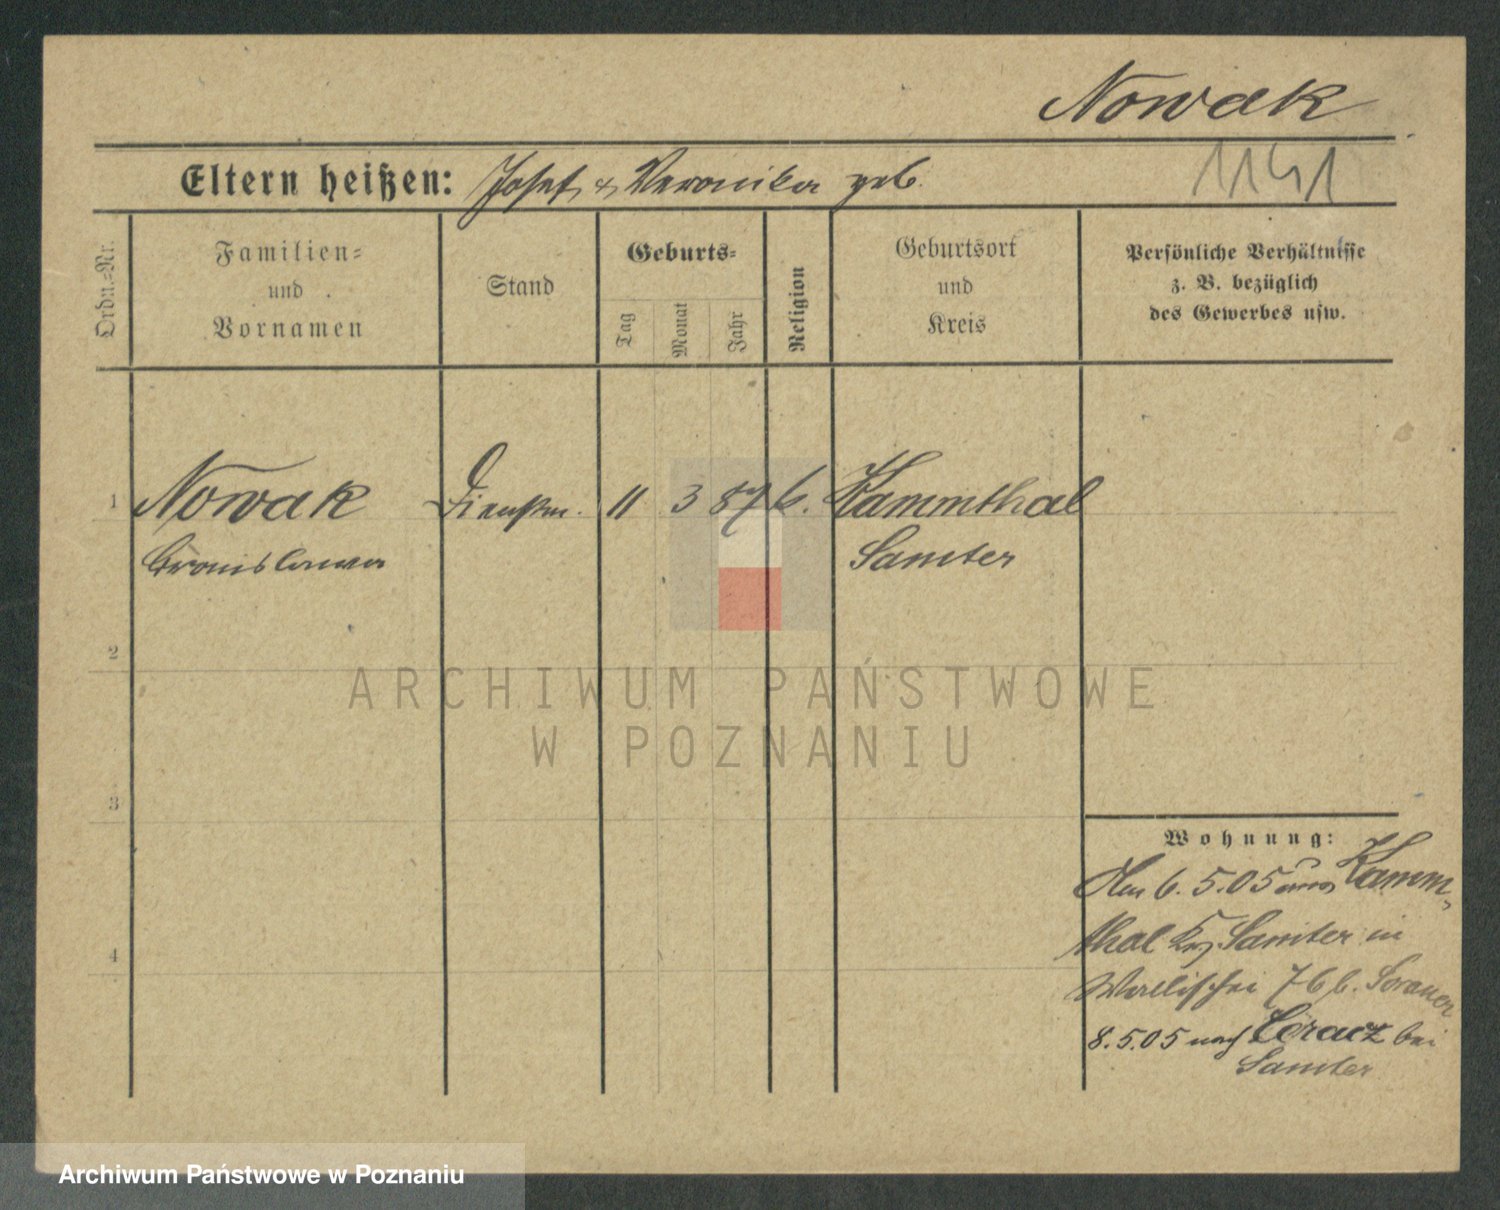 Nowak
1141
Eltern heißen: Josef & Veronika geb.
Ordn.=Nr.
Familien=
und
Vornamen
Stand
Geburts=
Tag
Monat
Jahr
Religion
Geburtsort
und
Kreis
Persönliche Verhältnisse
z. B. bezüglich
des Gewerbes usw.
1 Nowak Dienstm. 11 3 87 k. Kammthal
Bronislawa Samter
2
ARCHIWUM PAŃSTWOWE
W POZNANIU
3
Wohnung:
Den 6. 5. 05 aus Kamm-
thal Krs Samter in
4
Wallischei 76 b.
8. 5. 05 nach bei
Samter
Archiwum Państwowe w Poznaniu